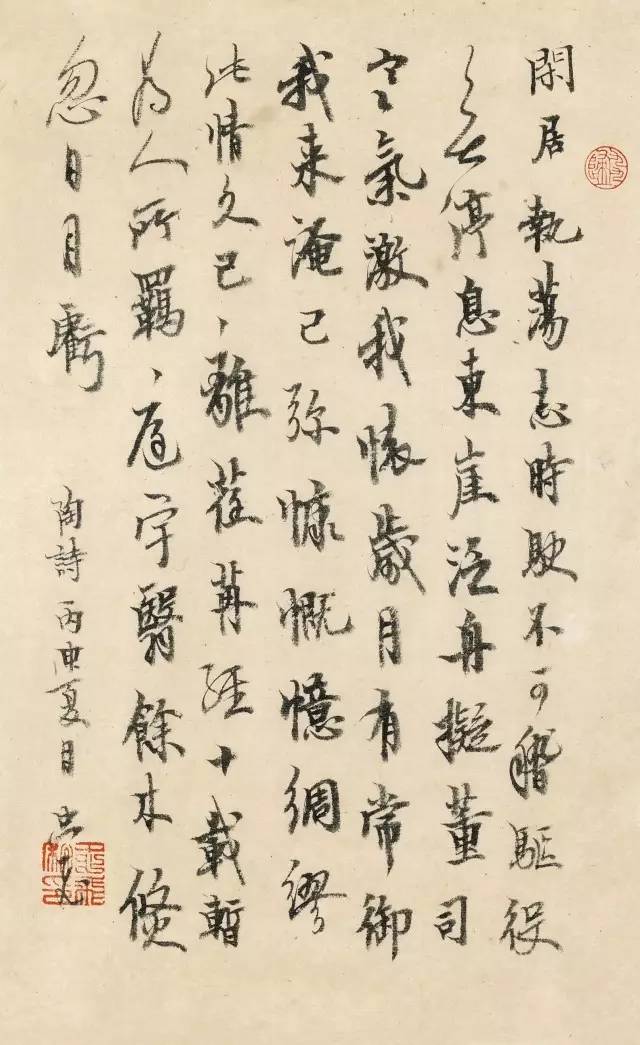 閑居執蕩志時駛不可稽驅役
無停息東崖泛舟擬董司
寒氣激我懷歲月有常御
我来淹已弥慷慨憶綢繆
此情久已、離荏苒經十載暫
為人所羈、庭宇翳餘木倏
忽日月虧
陶詩丙申夏日